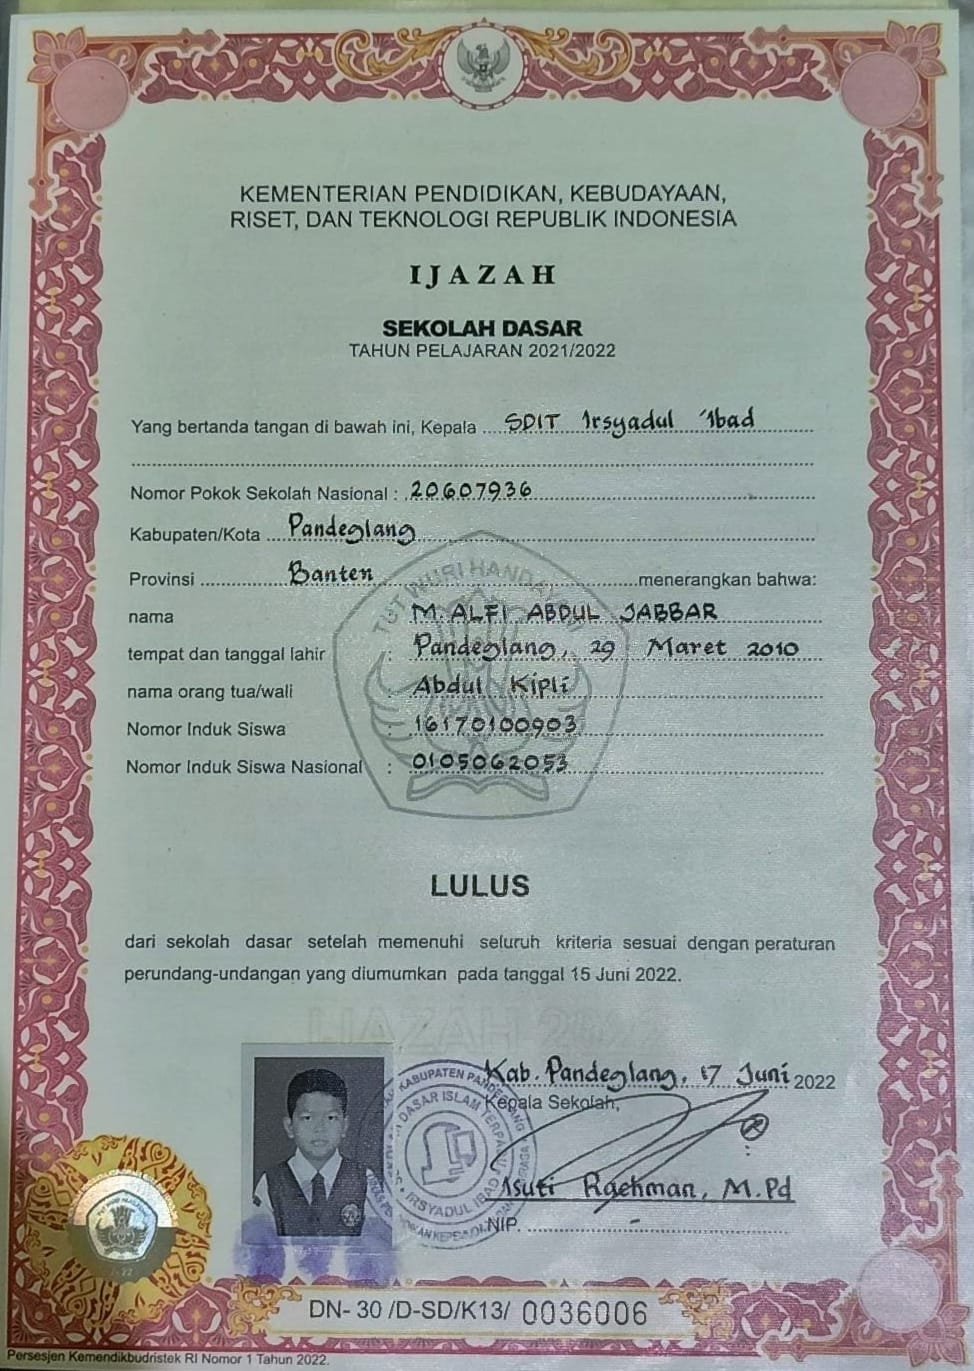 KEMENTERIAN PENDIDIKAN, KEBUDAYAAN,
RISET, DAN TEKNOLOGI REPUBLIK INDONESIA
IJAZAH
SEKOLAH DASAR
TAHUN PELAJARAN 2021/2022
Yang bertanda tangan di bawah ini, Kepala SDIT Irsyadul 'Ibad
Nomor Pokok Sekolah Nasional : 20607936
Kabupaten/Kota Pandeglang
Provinsi Banten menerangkan bahwa:
TUT WURI HANDAYANI
nama : M. ALFI ABDUL JABBAR
tempat dan tanggal lahir : Pandeglang, 29 Maret 2010
nama orang tua/wali : Abdul Kipli
Nomor Induk Siswa : 16170100903
Nomor Induk Siswa Nasional : 0105062053
LULUS
dari sekolah dasar setelah memenuhi seluruh kriteria sesuai dengan peraturan
perundang-undangan yang diumumkan pada tanggal 15 Juni 2022.
IJAZAH 2022
Kab. Pandeglang, 17 Juni 2022
Kepala Sekolah,
KABUPATEN PANDEGLANG
DASAR ISLAM
IRSYADUL IBAD
Isuti Rachman, M.Pd
NIP. -
DN- 30 /D-SD/K13/ 0036006
Persesjen Kemendikbudristek RI Nomor 1 Tahun 2022.